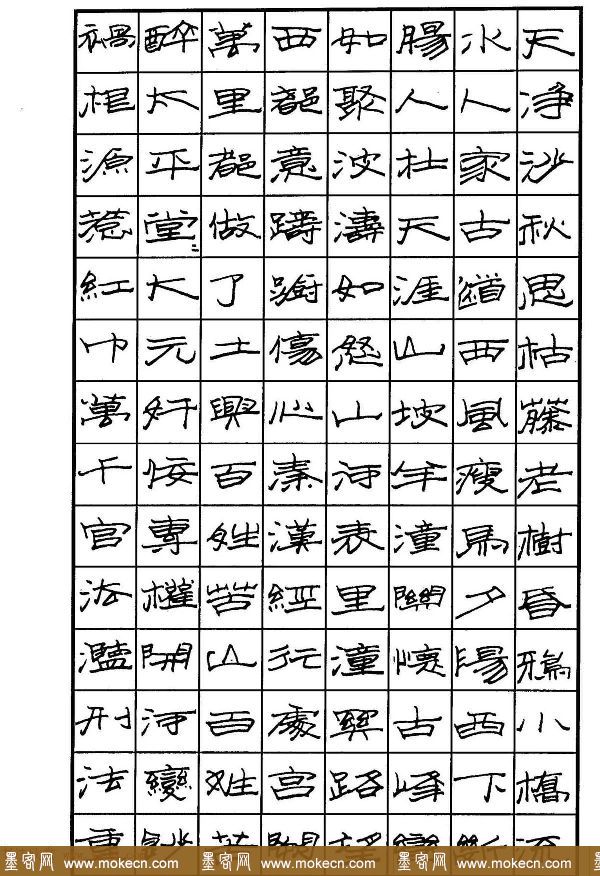 天净沙秋思枯藤老樹昏鴉小橋流
水人家古道西風瘦馬夕陽西下斷
腸人在天涯山坡羊潼關懷古峰巒
如聚波濤如怒山河表里潼關路望
西都意躊躇傷心秦漢經行處宮闕
萬里都做了土興百姓苦亡百姓苦
醉太平堂〻大元奸佞專權開河變鈔
禍根源惹紅巾萬千官法濫刑法重
墨客网 www.mokecn.com 墨客网 www.mokecn.com 墨客网 www.mokecn.com